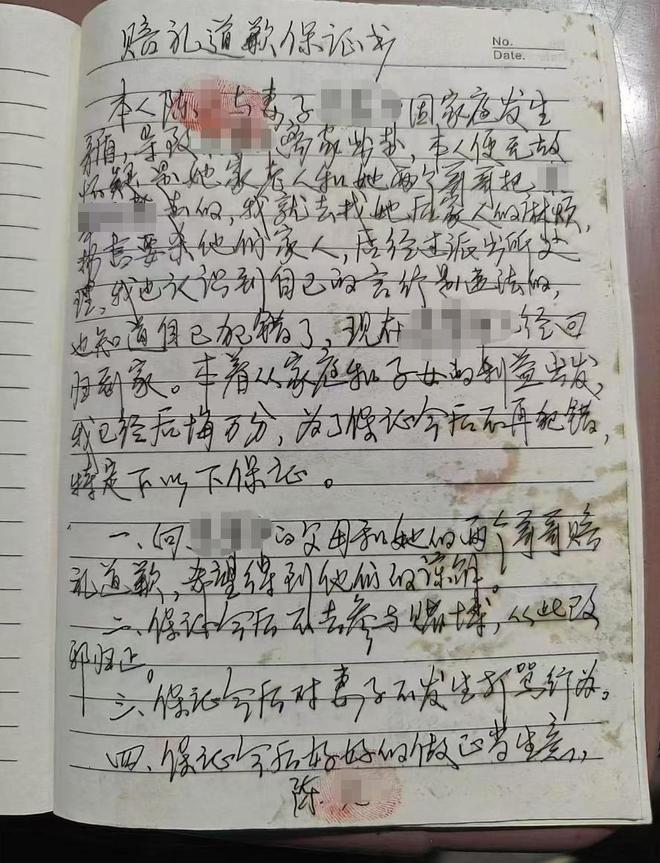 赔礼道歉保证书
No.
Date.
本人陈 与妻子 因家庭发生
矛盾,导致 离家出走,本人便无故
怀疑是她家老人和她两个哥哥把
弄去的,我就去找她后家人的麻烦,
扬言要杀他们家人,后经过派出所处
理,我也认识到自己的言行是违法的,
也知道自己犯错了,现在 经回
归到家。本着从家庭和子女的利益出发,
我已经后悔万分,为了保证今后不再犯错,
特定下以下保证。
一、向 的父母和她的两个哥哥赔
礼道歉,希望得到他们的谅解。
二、保证今后不去参与赌博,从此改
邪归正。
三、保证今后对妻子不发生打骂行为。
四、保证今后好好的做正当生意。
陈